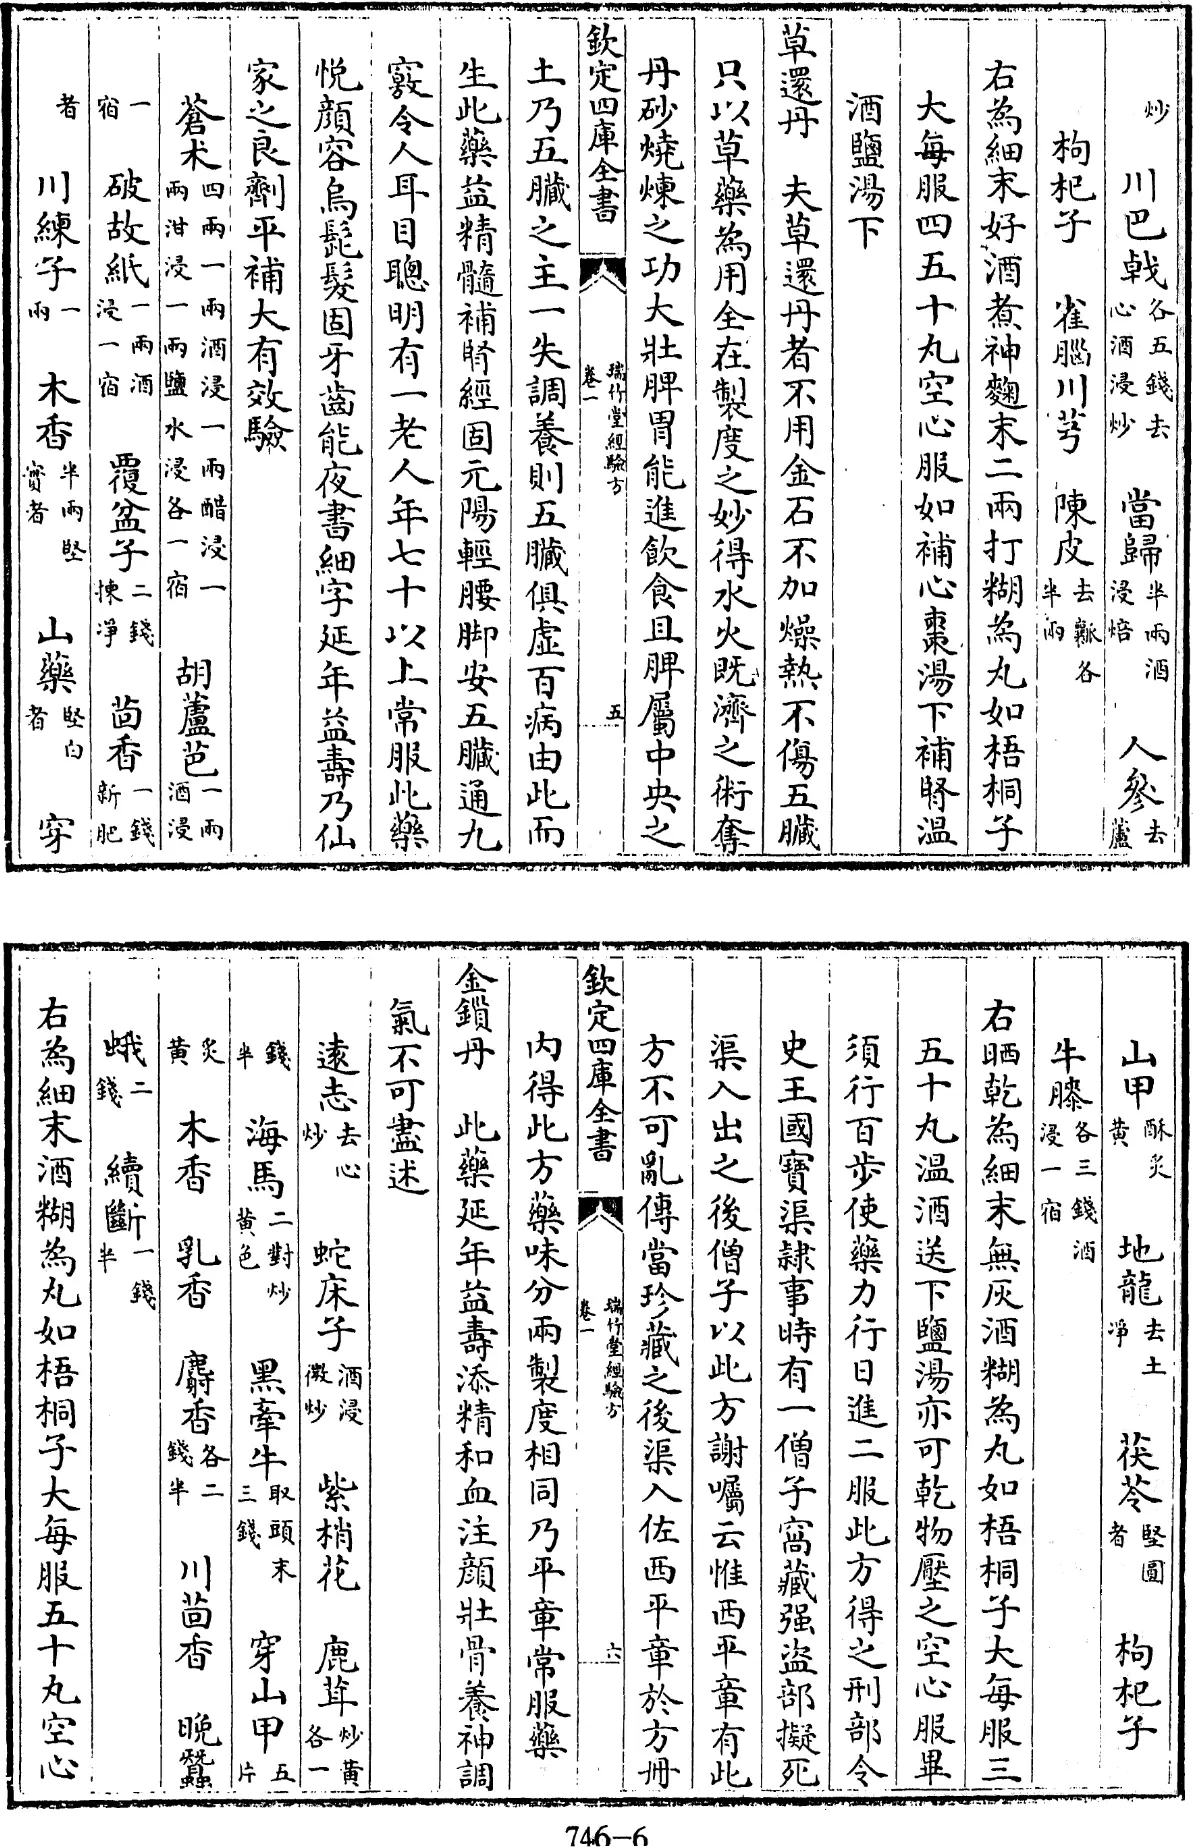 炒　川巴戟各五錢去心酒浸炒　當歸半兩酒浸焙　人參去蘆
枸杞子　雀腦川芎　陳皮去瓤各半兩
右為細末好酒煮神麴末二兩打糊為丸如梧桐子
大每服四五十丸空心服如補心棗湯下補腎温
酒鹽湯下
草還丹　夫草還丹者不用金石不加燥熱不傷五臟
只以草藥為用全在製度之妙得水火既濟之術奪
丹砂燒煉之功大壯脾胃能進飲食且脾屬中央之
欽定四庫全書　瑞竹堂經驗方卷一　五
土乃五臟之主一失調養則五臟俱虛百病由此而
生此藥益精髓補腎經固元陽輕腰脚安五臟通九
竅令人耳目聰明有一老人年七十以上常服此藥
悅顔容烏髭髮固牙齒能夜書細字延年益壽乃仙
家之良劑平補大有效驗
蒼术四兩一兩酒浸一兩醋浸一兩泔浸一兩鹽水浸各一宿　胡蘆芭一兩酒浸
一宿　破故紙一兩酒浸一宿　覆盆子二錢揀凈　茴香一錢新肥
者　川練子一兩　木香半兩堅實者　山藥堅白者　穿
山甲酥炙黄　地龍去土凈　茯苓堅圓者　枸杞子
牛膝各三錢酒浸一宿
右晒乾為細末無灰酒糊為丸如梧桐子大每服三
五十丸温酒送下鹽湯亦可乾物壓之空心服畢
須行百歩使藥力行日進二服此方得之刑部令
史王國寶渠隸事時有一僧子窩藏强盜部擬死
渠入出之後僧子以此方謝囑云惟西平章有此
方不可亂傳當珍藏之後渠入佐西平章於方冊
欽定四庫全書　瑞竹堂經驗方卷一　六
内得此方藥味分兩製度相同乃平章常服藥
金鎖丹　此藥延年益壽添精和血注顔壯骨養神調
氣不可盡述
遠志去心炒　蛇床子酒浸微炒　紫梢花　鹿茸炒黄各一
錢半　海馬二對炒黄色　黑牽牛取頭末三錢　穿山甲五片
炙黄　木香　乳香　麝香各二錢半　川茴香　晚蠶
蛾二錢　續斷一錢半
右為細末酒糊為丸如梧桐子大每服五十丸空心
746-6